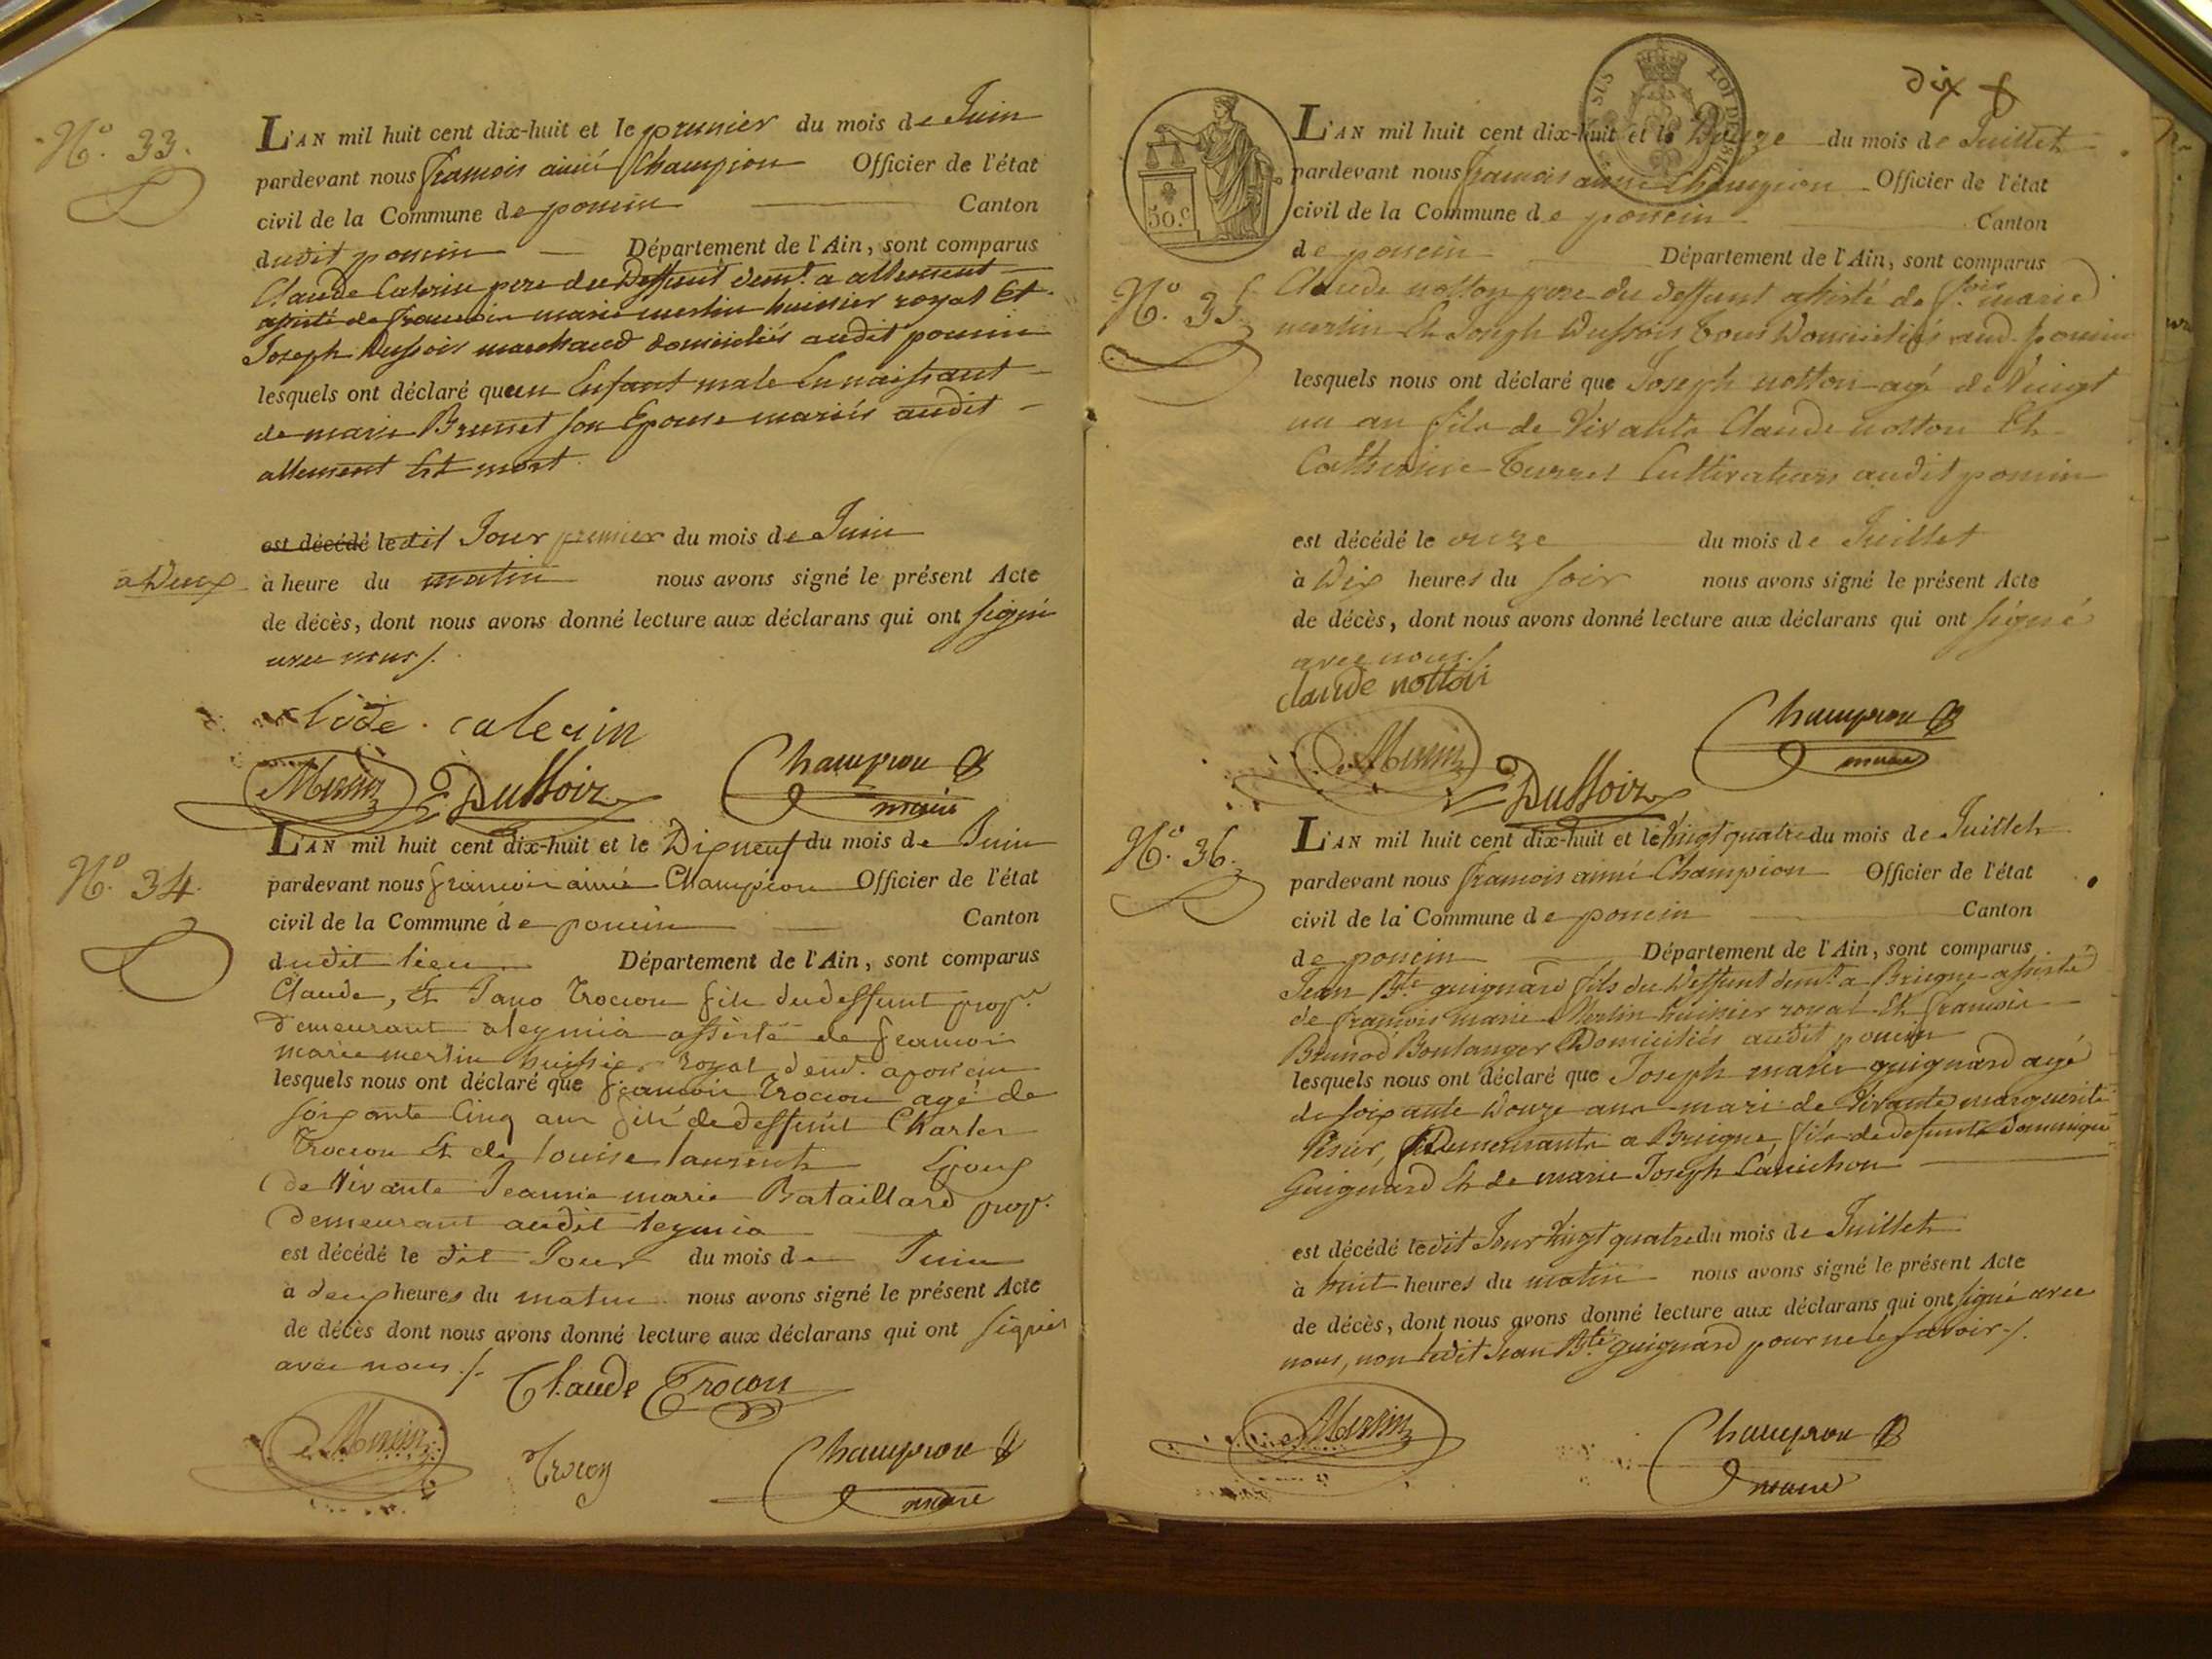 N.° 33.
L'AN mil huit cent dix-huit et le premier du mois de Juin
pardevant nous francois aimé Champion Officier de l'état
civil de la Commune de poncin Canton
dudit poncin Département de l'Ain, sont comparus
Claude Caterin pere du deffunt dem.t a allement
assisté de francois marie merlin huissier royal Et
Joseph Dussoir marchand domiciliés audit poncin
lesquels ont déclaré quun Enfant male En naissant
de marie Brunet son Epouse mariés audit
allement Est mort
est décédé ledit Jour premier du mois de Juin
a deux à heure du matin nous avons signé le présent Acte
de décès, dont nous avons donné lecture aux déclarans qui ont signé
avec nous /.
Clode caterin
Merlin Dussoir Champion
maire
N.° 34.
L'AN mil huit cent dix-huit et le Dixneuf du mois de Juin
pardevant nous francois aimé Champion Officier de l'état
civil de la Commune de poncin Canton
dudit lieu Département de l'Ain, sont comparus
Claude, Et Trocon fils du deffunt prop.r
demeurant a leymia assisté de francois
marie merlin huissier royal dem.t a poncin
lesquels nous ont déclaré que francois Trocon agé de
soixante Cinq ans fils de deffunt Charles
Trocon Et de louise laurent Epoux
de Vivante Jeanne marie Bataillard prop.r
demeurant audit leymia
est décédé le dit Jour du mois de Juin
à deux heures du matin nous avons signé le présent Acte
de décès dont nous avons donné lecture aux déclarans qui ont signés
avec nous /.
Claude Trocon
Merlin Trocon Champion
maire
dix
SUS LOI DE 1816
50.c
L'AN mil huit cent dix-huit et le Douze du mois de Juillet
pardevant nous francois aimé Champion Officier de l'état
civil de la Commune de poncin Canton
de poncin Département de l'Ain, sont comparus
N.° 35.
Claude notton pere du deffunt assisté de f.ois marie
merlin Et Joseph Dussoir tous Domiciliés aud. poncin
lesquels nous ont déclaré que Joseph notton agé de Vingt
un an fils de Vivants Claude notton Et
Catherine Cultivateurs audit poncin
est décédé le onze du mois de Juillet
à Dix heures du soir nous avons signé le présent Acte
de décès, dont nous avons donné lecture aux déclarans qui ont signé
avec nous /.
claude notton
Merlin Dussoir Champion
maire
N.° 36.
L'AN mil huit cent dix-huit et le Vingt quatre du mois de Juillet
pardevant nous francois aimé Champion Officier de l'état
civil de la Commune de poncin Canton
de poncin Département de l'Ain, sont comparus
Jean B.te guignard fils du Deffunt dem.t a Breigne assisté
de francois marie Merlin huissier royal Et francois
Brunod Boulanger Domiciliés audit poncin
lesquels nous ont déclaré que Joseph marie guignard agé
de soixante Douze ans mari de Vivante marguerite
Demeurante a Breigne, fils de defunts Dominique
Guignard Et de marie Joseph
est décédé ledit Jour Vingt quatre du mois de Juillet
à huit heures du matin nous avons signé le présent Acte
de décès, dont nous avons donné lecture aux déclarans qui ont signé avec
nous, non ledit Jean B.te guignard pour ne le savoir /.
Merlin Champion
maire